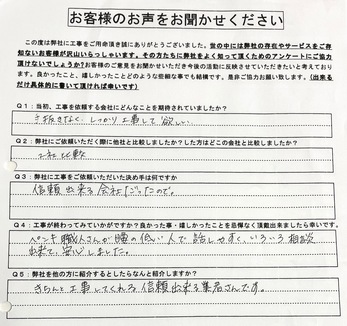 お客様のお声をお聞かせください
この度は弊社に工事をご用命頂き誠にありがとうございました。世の中には弊社の存在やサービスをご存
知ないお客様が沢山いらっしゃいます。その方たちに弊社をよく知って頂くためのアンケートにご協力
頂けないでしょうか?お客様のご意見をお聞かせいただき今後の活動に反映させていただきたいと考えており
ます。良かったこと、嬉しかったことどのような些細な事でも結構です。是非ご協力お願い致します。(出来る
だけ具体的に書いて頂ければ幸いです)
Q1:当初、工事を依頼する会社にどんなことを期待されていましたか?
手抜きなく、しっかり工事して欲しい
Q2:弊社にご依頼いただく際に他社と比較しましたか?した方はどこの会社と比較しましたか?
社比較
Q3:弊社に工事をご依頼いただいた決め手は何ですか
信頼出来る会社だったので。
Q4:工事が終わってみていかがですか?良かった事・嬉しかったことを忌憚なく頂戴出来ましたら幸いです。
ペンキ職人さんが腰の低い人で話しやすく、いろいろ相談
出来て、安心しました。
Q5:弊社を他の方に紹介するとしたらなんと紹介しますか?
きちんと工事してくれる、信頼出来る業者さんです。